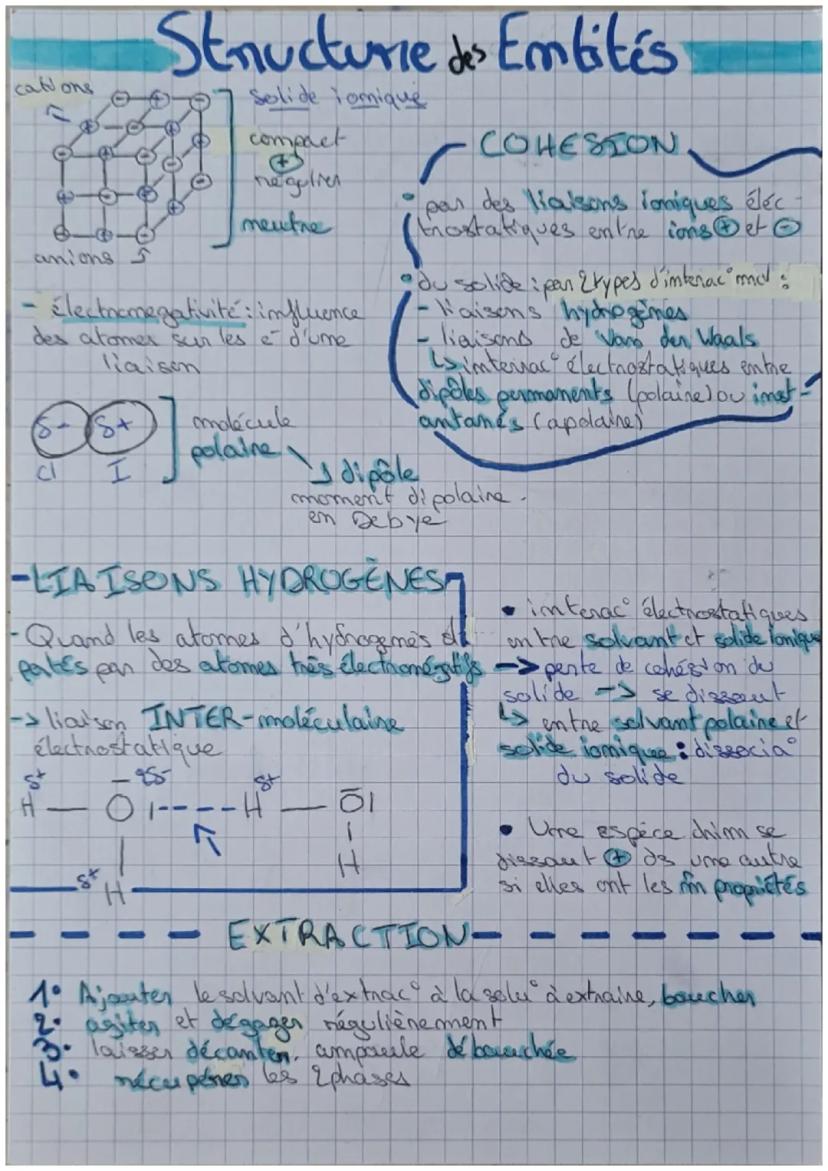 Structure des Entités
cations
solide ionique
compact
⊕
régulier
neutre
anions
COHESION
• par des liaisons ioniques éléc-
trostatiques entre ions ⊕ et ⊖
• du solide : par 2 types d'interac° mol :
- liaisons hydrogènes
- liaisons de Van der Waals
↳ interrac° électrostatiques entre
dipôles permanents (polaire) ou inst-
antanés (apolaire)
- électronégativité : influence
des atomes sur les e- d'une
liaison
δ- δ+
Cl I
molécule
polaire ↘ dipôle
moment dipolaire
en Debye
- LIAISONS HYDROGÈNES
- Quand les atomes d'hydrogènes st
patés par des atomes très électronégatifs
-> liaison INTER-moléculaire
électrostatique
δ+ 2δ- δ+
H — O ı---- H — OI
H
δ+ H
• interac° électrostatiques
entre solvant et solide ionique
-> perte de cohésion du
solide -> se dissout
↳ entre solvant polaire et
solide ionique : dissocia°
du solide
• Une espèce chim se
dissout ⊕ ds une autre
si elles ont les m̂ propriétés
EXTRACTION
1• Ajouter le solvant d'extrac° à la solu° à extraire, boucher
2• agiter et dégager régulièrement
3• laisser décanter, ampoule débouchée
4• récupérer les 2 phases